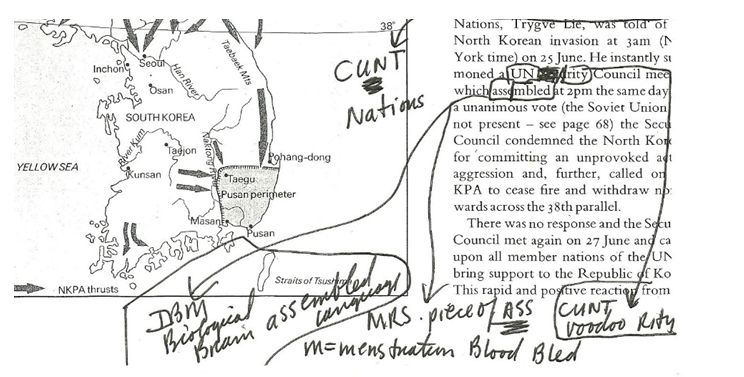 38°
Inchon
Seoul
Han River
Taebaek Mts
Osan
SOUTH KOREA
YELLOW SEA
River Kum
Taejon
Naktong
Kunsan
Pohang-dong
Taegu
Pusan perimeter
Masan
Pusan
Straits of Tsushima
NKPA thrusts
CUNT
Nations
DBM
Biological
Brain assembled
language
MRS. piece of ASS
m=menstruation Blood Bled
Nations, Trygve Lie, was told of
North Korean invasion at 3am (N
York time) on 25 June. He instantly su
moned a UN rity Council mee
which assembled at 2pm the same day
a unanimous vote (the Soviet Union
not present – see page 68) the Secu
Council condemned the North Kor
for committing an unprovoked ac
aggression and, further, called on
KPA to cease fire and withdraw no
wards across the 38th parallel.
There was no response and the Secu
Council met again on 27 June and ca
upon all member nations of the UN
bring support to the Republic of Ko
This rapid and positive reaction from
CUNT
Voodoo Rity